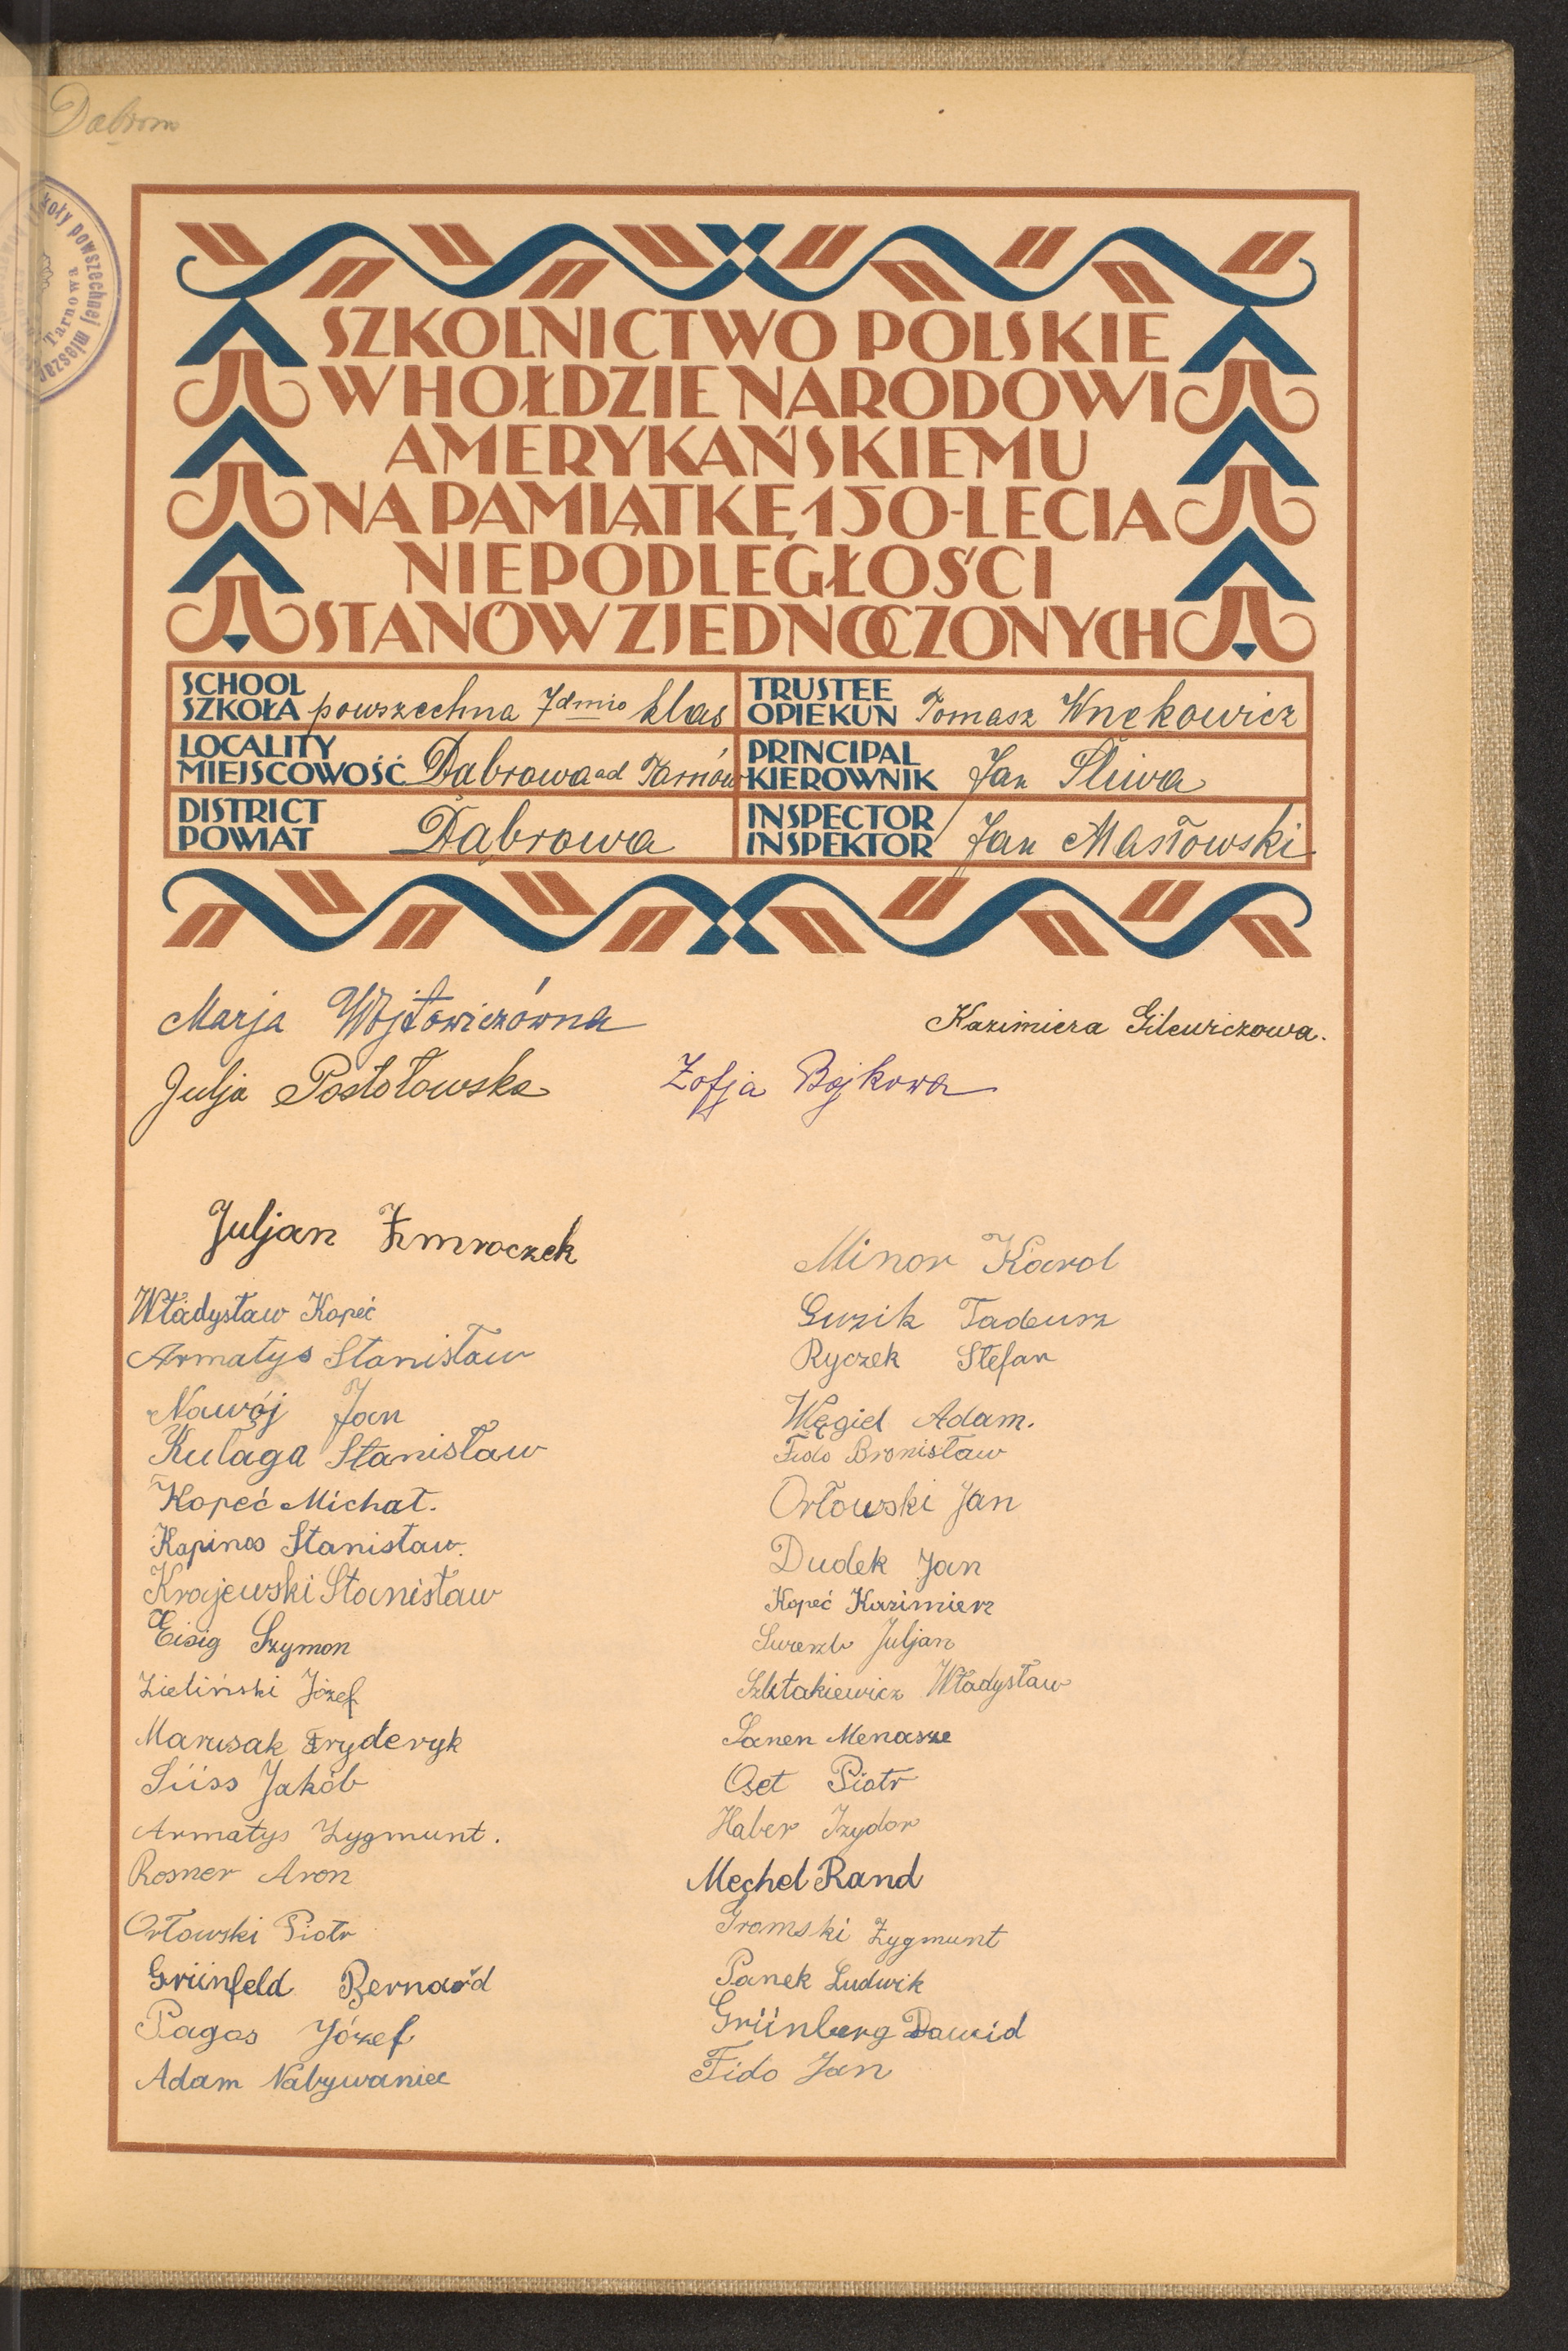 Dabrow
koły powszechnej miesza
Tarnowa
SZKOLNICTWO POLSKIE
W HOŁDZIE NARODOWI
AMERYKAŃSKIEMU
NA PAMIĄTKĘ 150-LECIA
NIEPODLEGŁOŚCI
STANÓW ZJEDNOCZONYCH
SCHOOL
SZKOŁA powszechna 7dmio klas
TRUSTEE
OPIEKUN Tomasz Wnękowicz
LOCALITY
MIEJSCOWOŚĆ Dąbrowa ad Tarnów
PRINCIPAL
KIEROWNIK Jan Śliwa
DISTRICT
POWIAT Dąbrowa
INSPECTOR
INSPEKTOR Jan Masłowski
Marja Wójtowiczówna
Kazimiera Gilewiczowa.
Julja Postołowska
Zofja Bojkowa
Juljan Zmroczek
Władysław Kopeć
Armatys Stanisław
Nawój Jan
Kułaga Stanisław
Kopeć Michał.
Kapinos Stanisław.
Krajewski Stanisław
Eisig Szymon
Zieliński Józef
Marusak Fryderyk
Süss Jakób
Armatys Zygmunt.
Rosner Aron
Orłowski Piotr
Grünfeld Bernard
Pagos Józef
Adam Nabywaniec
Minor Karol
Guzik Tadeusz
Ryczek Stefan
Węgiel Adam.
Fido Bronisław
Orłowski Jan
Dudek Jan
Kopeć Kazimierz
Juljan
Władysław
Sanen Menasze
Oset Piotr
Haber Izydor
Mechel Rand
Gromski Zygmunt
Panek Ludwik
Grünberg Dawid
Fido Jan